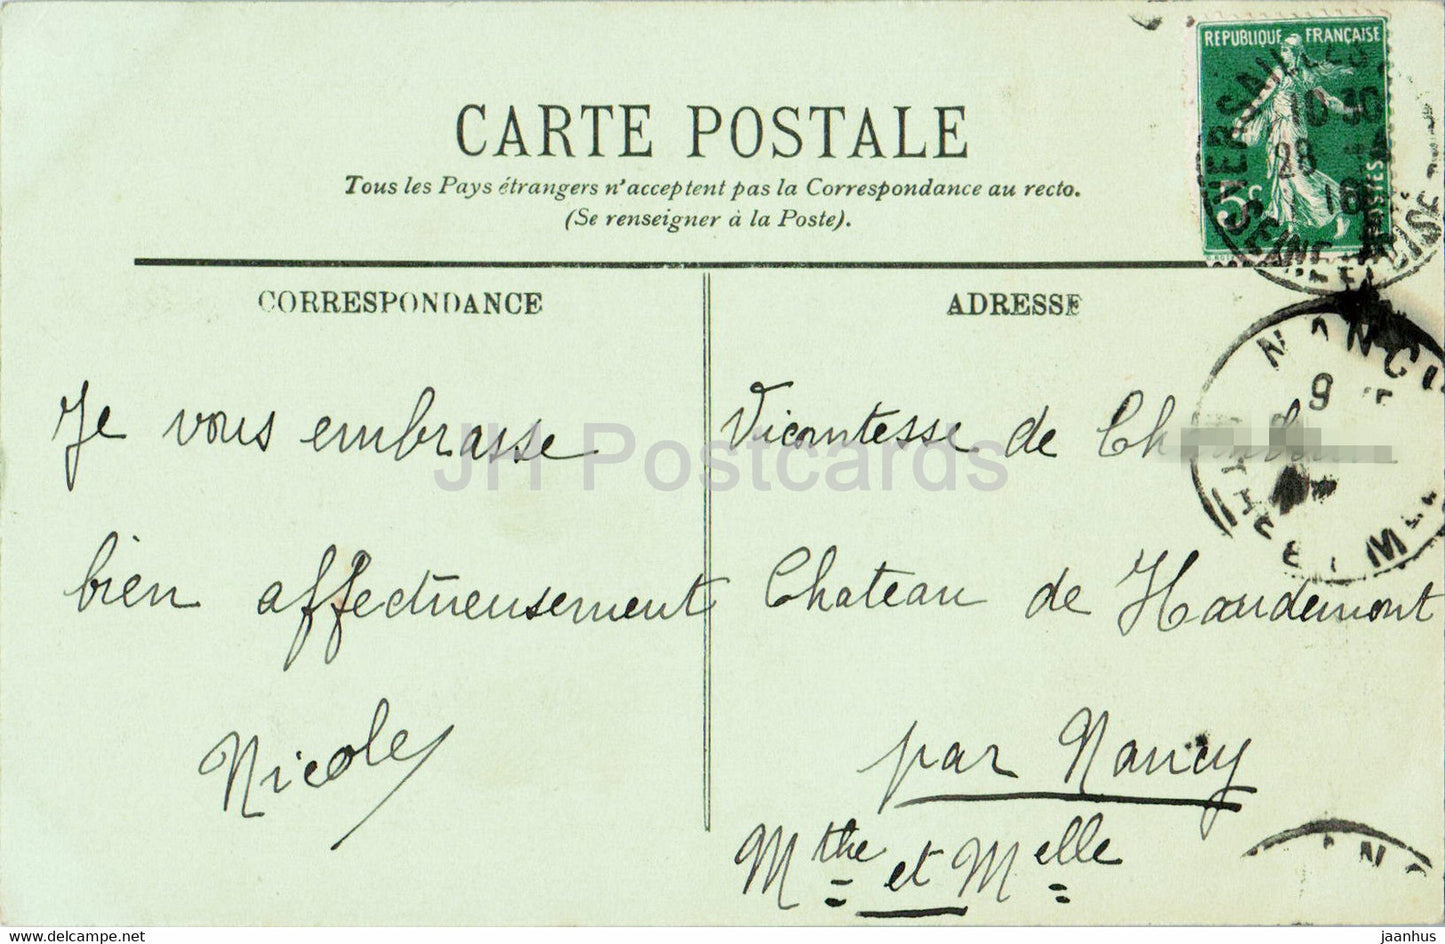 CARTE POSTALE
Tous les Pays étrangers n'acceptent pas la Correspondance au recto.
(Se renseigner à la Poste).
REPUBLIQUE FRANÇAISE
POSTES
5c
VERSAILLES
10 30
28
SEINE ET OISE
CORRESPONDANCE
ADRESSE
NANCY
Je vous embrasse
bien affectueusement
Nicole
Vicomtesse de
Chateau de Haudemont
par Nancy
Mthe et Melle
JH Postcards
www.delcampe.net
jaanhus